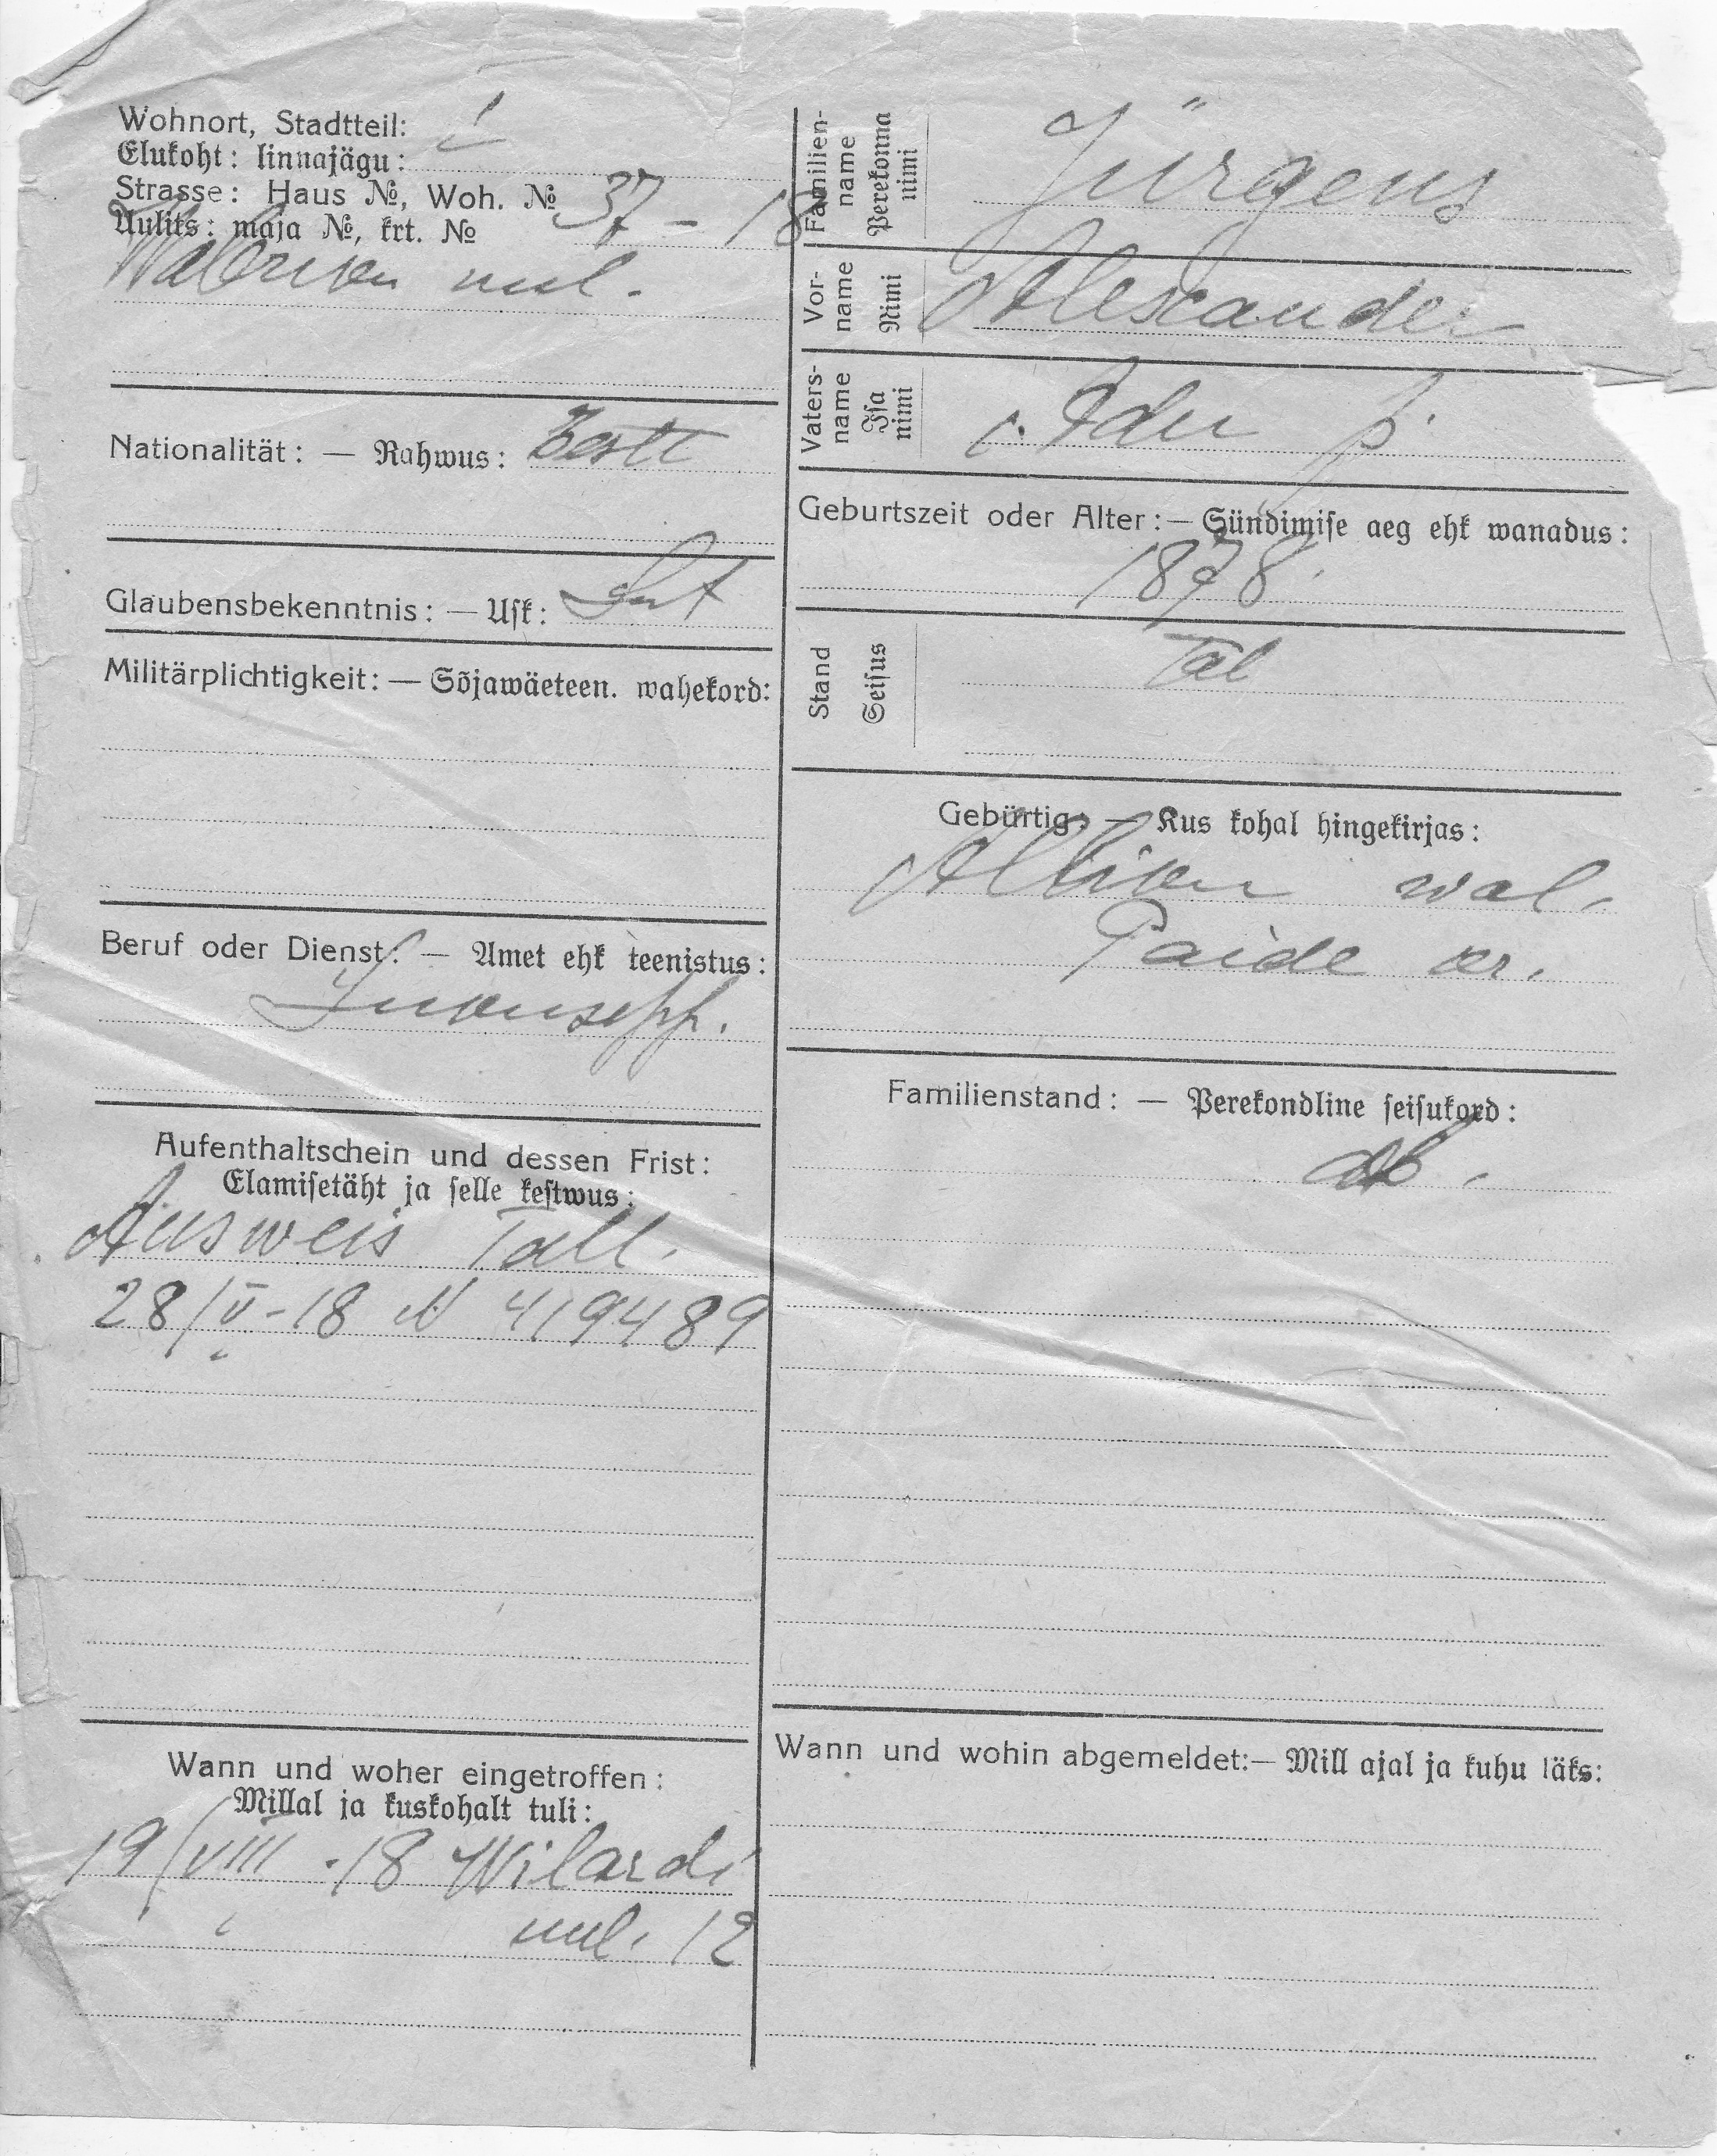 Wohnort, Stadtteil:
Elukoht: linnajägu:
Strasse: Haus №, Woh. № 37 - 18
Uulits: maja №, krt. №
uul.
Nationalität: — Rahwus: Eestl
Glaubensbekenntnis: — Usk: Lut
Militärplichtigkeit: — Sõjawäeteen. wahekord:
Beruf oder Dienst: — Amet ehk teenistus:
Aufenthaltschein und dessen Frist:
Elamisetäht ja selle kestwus:
Ausweis Tall.
28/V-18 N 419489
Wann und woher eingetroffen:
Millal ja kuskohalt tuli:
19/VIII-18 Wilardi
uul. 12
Familien-
name
Perekonna
nimi
Jürgens
Vor-
name
Nimi
Alexander
Vaters-
name
Isa
nimi
p.
Geburtszeit oder Alter: — Sündimise aeg ehk wanadus:
1878
Stand
Seisus
Tal
Gebürtig: — Kus kohal hingekirjas:
Albu wal.
Paide kr.
Familienstand: — Perekondline seisukord:
ab.
Wann und wohin abgemeldet: — Mill ajal ja kuhu läks: